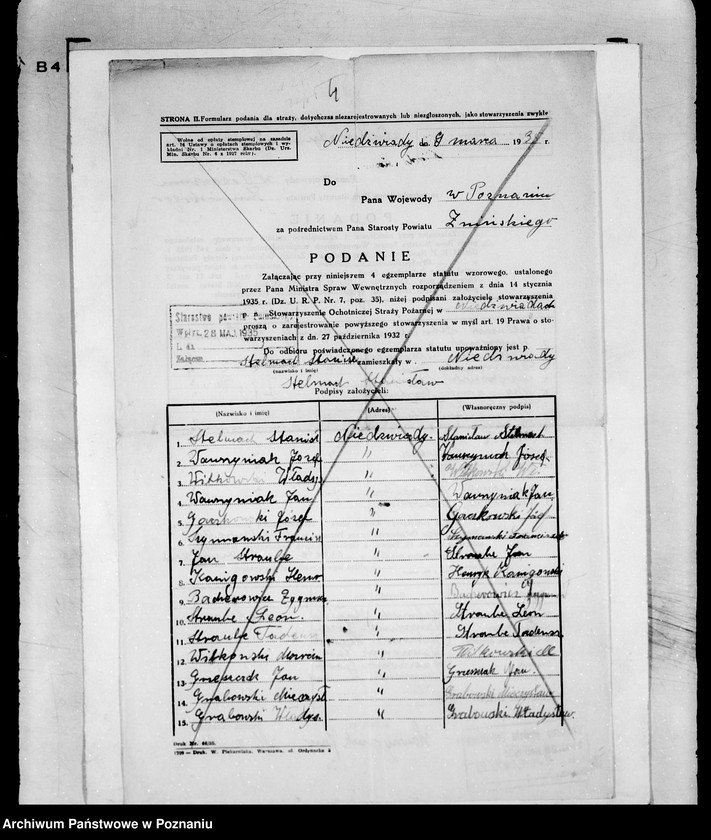 B4
4
STRONA II. Formularz podania dla straży, dotychczas niezarejestrowanych lub niezgłoszonych, jako stowarzyszenia zwykłe
Wolne od opłaty stemplowej na zasadzie
art. 14 Ustawy o opłatach stemplowych i wy-
kładni Nr. 1 Ministerstwa Skarbu (Dz. Urz.
Min. Skarbu Nr. 6 z 1927 roku).
Niedźwiady dn. 9 marca 1935 r.
Do
Pana Wojewody w Poznaniu
za pośrednictwem Pana Starosty Powiatu Żnińskiego
PODANIE
Załączając przy niniejszem 4 egzemplarze statutu wzorowego, ustalonego
przez Pana Ministra Spraw Wewnętrznych rozporządzeniem z dnia 14 stycznia
1935 r. (Dz. U. R. P. Nr. 7, poz. 35), niżej podpisani założyciele stowarzyszenia
p. n. Stowarzyszenie Ochotniczej Straży Pożarnej w Niedźwiadach
proszą o zarejestrowanie powyższego stowarzyszenia w myśl art. 19 Prawa o sto-
warzyszeniach z dn. 27 października 1932 r.
Starostwo
Wpłyn. 28 MAJ 1935
Do odbioru poświadczonego egzemplarza statutu upoważniony jest p.
Stelmach Stanisł zamieszkały w Niedźwiady
(nazwisko i imię) (dokładny adres)
Stelmach Stanisław
Podpisy założycieli:
(Nazwisko i imię) (Adres) (Własnoręczny podpis)
1. Stelmach Stanisł Niedźwiady. Stanisław Stelmach
2. Wawrzyniak Józef " Wawrzyniak Józef
3. Witkowski Władys " Witkowski Wł.
4. Wawrzyniak Jan " Wawrzyniak Jan
5. Gaczkowski Józef " Gaczkowski Józef
6. Szymański Francisz " Szymański Franciszek
7. Jan Straube " Straube Jan
8. Kanigowski Henr " Henryk Kanigowski
9. Zygmun "
10. Straube Leon. " Straube Leon
11. Straube Tadeusz " Straube Tadeusz
12. Witkowski Marcin " Witkowski M
13. Grzeszczak Jan " Jan
14. Grabowski Mieczysł " Grabowski Mieczysław
15. Grabowski Władys. " Grabowski Władysław.
Druk Nr. 60/35.
1709 — Druk. W. Piekarniaka, Warszawa, ul. Ordynacka 6
Archiwum Państwowe w Poznaniu